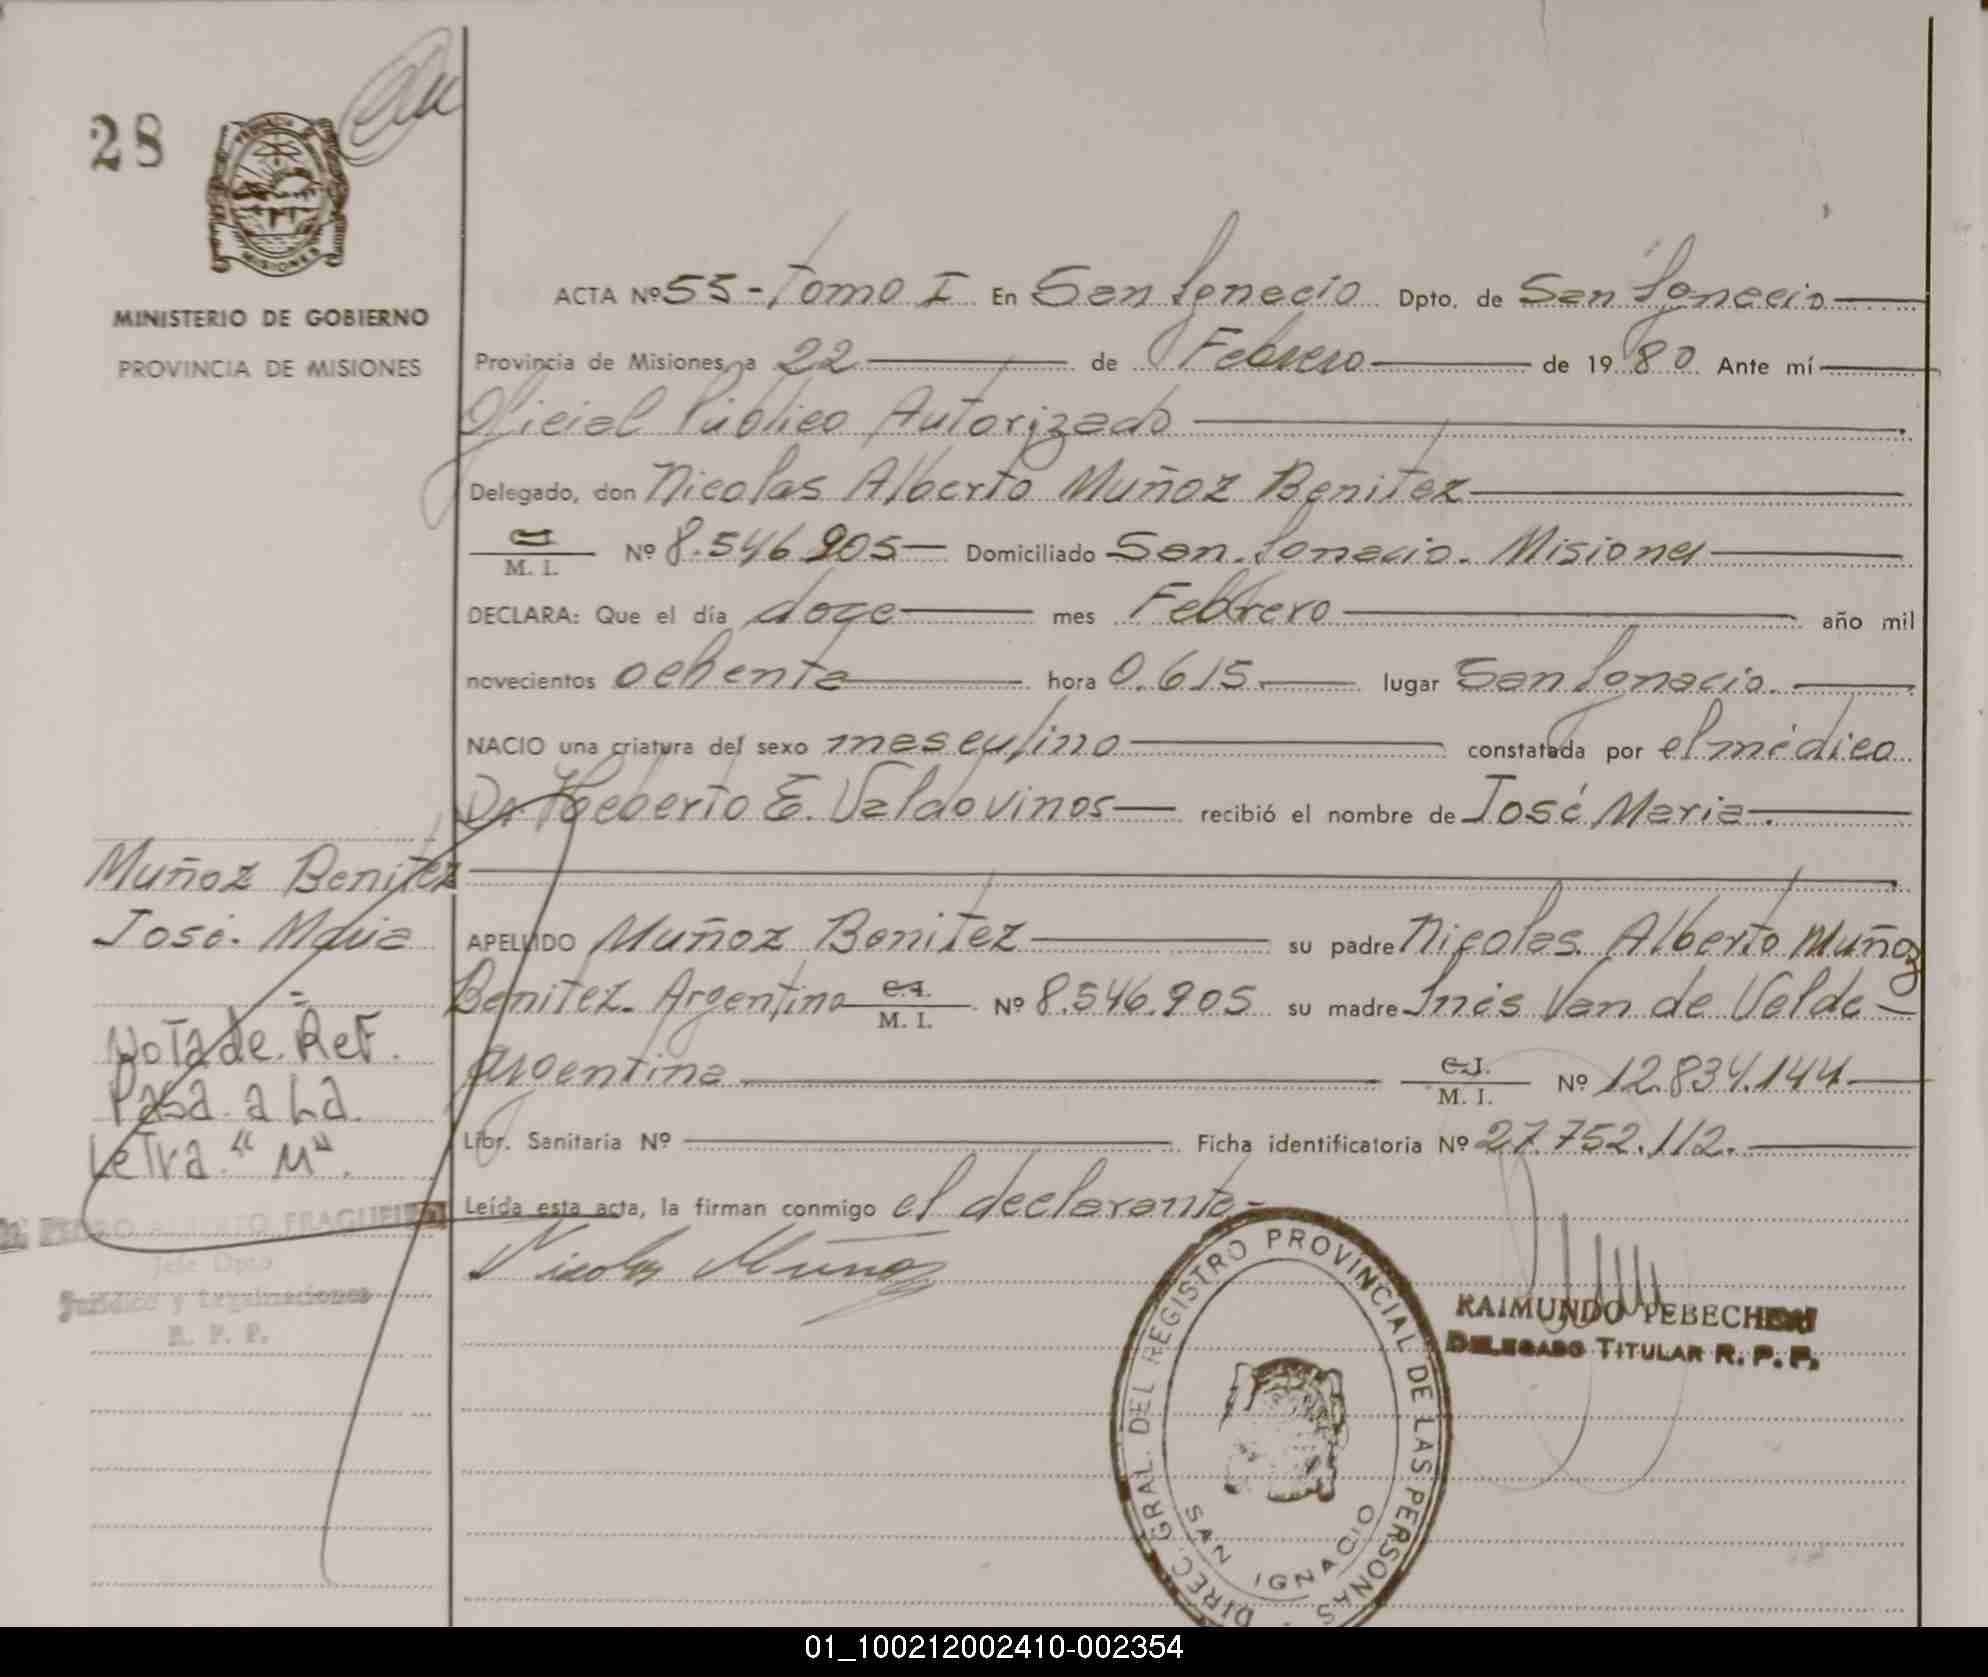 28
PROVINCIA DE
MISIONES
MINISTERIO DE GOBIERNO
PROVINCIA DE MISIONES
ACTA Nº 55 - Tomo I En San Ignacio Dpto. de San Ignacio
Provincia de Misiones, a 22 de Febrero de 1980 Ante mí
Oficial Público Autorizado
Delegado, don Nicolas Alberto Muñoz Benitez
M. I. Nº 8.546.905 Domiciliado San Ignacio. Misiones
DECLARA: Que el día doce mes Febrero año mil
novecientos ochenta hora 0.615 lugar San Ignacio.
NACIO una criatura del sexo masculino constatada por el médico
Dr. Heberto E. Valdovinos recibió el nombre de José Maria.
APELLIDO Muñoz Benitez su padre Nicolas Alberto Muñoz
Benitez. Argentino C.I. M. I. Nº 8.546.905 su madre Inés Van de Velde
argentina C.I. M. I. Nº 12.834.144
Libr. Sanitaria Nº Ficha identificatoria Nº 27.752.112.
Leída esta acta, la firman conmigo el declarante-
Nicolas Muñoz
Muñoz Benitez
José Maria
=
Nota de Ref.
Pasa a La
Letra "M".
PEDRO ALBERTO
Jefe Dpto
Jurídico y Legalizaciones
R. P. P.
DIREC. GRAL. DEL REGISTRO PROVINCIAL DE LAS PERSONAS
SAN IGNACIO
RAIMUNDO
DELEGADO TITULAR R. P. P.
01_100212002410-002354